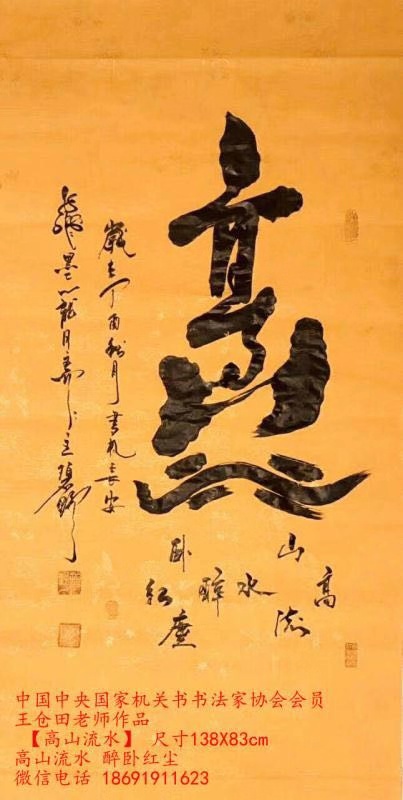 高山流水
醉卧红塵
歲在丁酉秋月書於長安
中国中央国家机关书书法家协会会员
王仓田老师作品
【高山流水】 尺寸138X83cm
高山流水 醉卧红尘
微信电话 18691911623